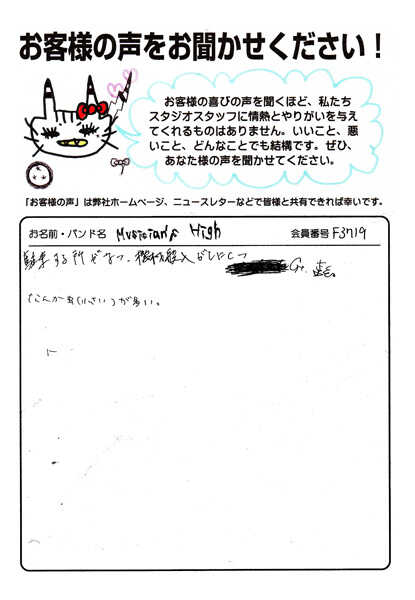 お客様の声をお聞かせください！
お客様の喜びの声を聞くほど、私たち
スタジオスタッフに情熱とやりがいを与え
てくれるものはありません。いいこと、悪
いこと、どんなことでも結構です。ぜひ、
あなた様の声を聞かせてください。
「お客様の声」は弊社ホームページ、ニュースレターなどで皆様と共有できれば幸いです。
お名前・バンド名 Musician High 会員番号 F3719
する所
なんか (小さい)が多い。